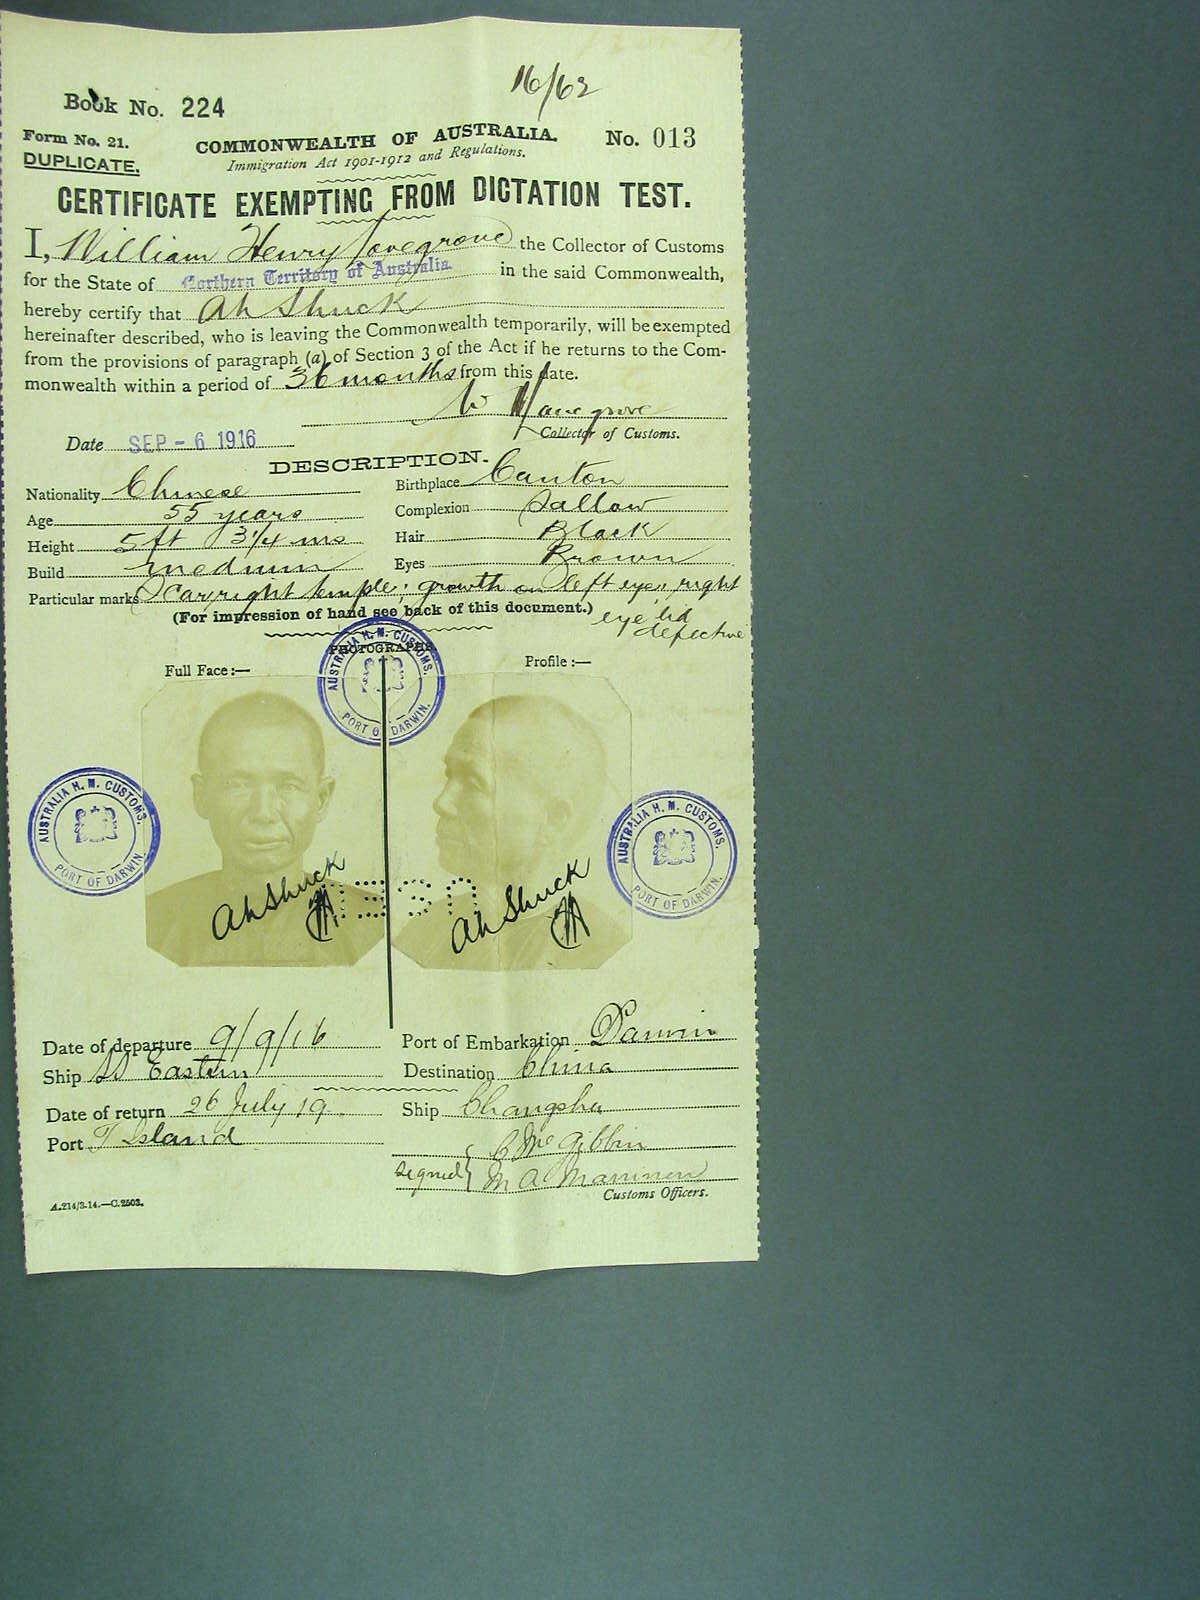 16/62
Book No. 224
Form No. 21.
DUPLICATE.
COMMONWEALTH OF AUSTRALIA.
No. 013
Immigration Act 1901-1912 and Regulations.
CERTIFICATE EXEMPTING FROM DICTATION TEST.
I, William Henry Lovegrove the Collector of Customs
for the State of Northern Territory of Australia in the said Commonwealth,
hereby certify that Ah Shuck
hereinafter described, who is leaving the Commonwealth temporarily, will be exempted
from the provisions of paragraph (a) of Section 3 of the Act if he returns to the Com-
monwealth within a period of 36 months from this date.
W H Lovegrove
Collector of Customs.
Date SEP - 6 1916
DESCRIPTION.
Nationality Chinese
Birthplace Canton
Age 55 years
Complexion Sallow
Height 5 ft 3 1/4 ins
Hair Black
Build medium
Eyes Brown
Particular marks Scar, right temple; growth on left eye, right
eye lid
defective
(For impression of hand see back of this document.)
PHOTOGRAPHS
Full Face:—
Profile:—
AUSTRALIA H. M. CUSTOMS. PORT OF DARWIN.
AUSTRALIA H. M. CUSTOMS. PORT OF DARWIN.
AUSTRALIA H. M. CUSTOMS. PORT OF DARWIN.
Ah Shuck
Ah Shuck
Date of departure 9/9/16
Port of Embarkation Darwin
Ship SS Eastern
Destination China
Date of return 26 July 19
Ship Changsha
Port T Island
signed { C McGibbin
M A
Customs Officers.
A.214/3.14.—C.2503.